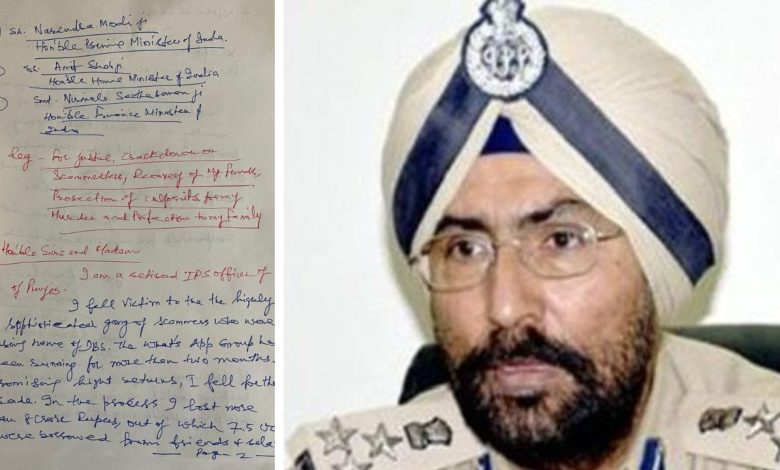 Sh. Narendra Modi ji
Hon'ble Prime Minister of India.
Sh. Amit Shah ji
Hon'ble Home Minister of India
Smt. Nirmala Seetharaman ji
Hon'ble Finance Minister of
India
Reg - For justice, Crackdown on
Scammesters, Recovery of My funds,
Prosecution of culprits for my
Murder and Protection to my family
Hon'ble Sirs and Madam
I am a retired IPS officer of
of Punjab.
I fell victim to the the highly
sophisticated gang of scammers who were
using name of DBS. The What's App Group ha
been running for more than two months.
romising hight returns, I fell for the
In the process I lost more
an 8 crore Rupees, out of which 7.5
were borrowed from friends &
Page - 2